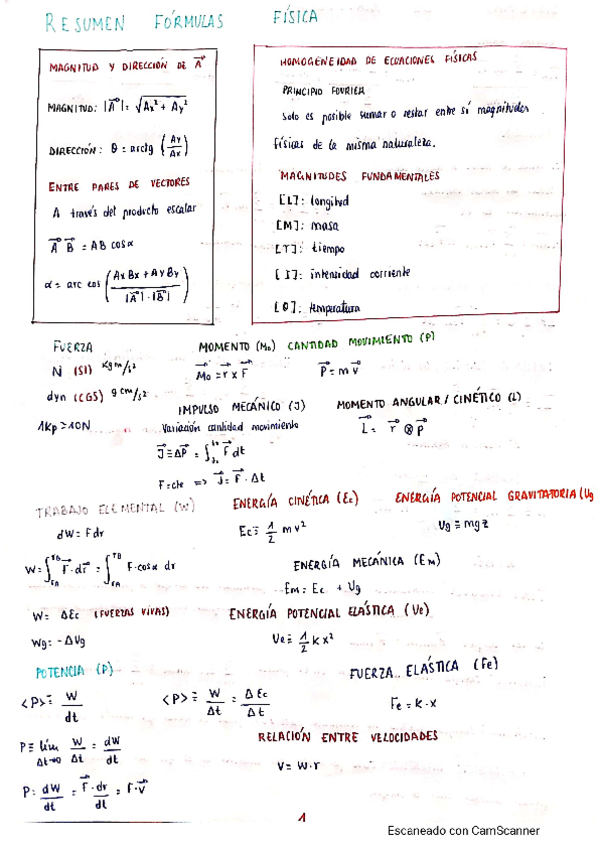 RESUMEN FÓRMULAS FÍSICA
MAGNITUD Y DIRECCIÓN DE A⃗
MAGNITUD: |A⃗| = √(Ax² + Ay²)
DIRECCIÓN: θ = arctg (Ay/Ax)
ENTRE PARES DE VECTORES
A través del producto escalar
A⃗ B⃗ = AB cosα
α = arc cos ((AxBx + AyBy) / (|A⃗|·|B⃗|))
HOMOGENEIDAD DE ECUACIONES FÍSICAS
PRINCIPIO FOURIER
Solo es posible sumar o restar entre sí magnitudes
físicas de la misma naturaleza.
MAGNITUDES FUNDAMENTALES
[L]: longitud
[M]: masa
[T]: tiempo
[I]: intensidad corriente
[θ]: temperatura
FUERZA
N (SI) kg m/s²
dyn (CGS) g cm/s²
1Kp ≃ 10N
MOMENTO (Mo)
M⃗o = r⃗ x F⃗
CANTIDAD MOVIMIENTO (P)
P⃗ = m v⃗
IMPULSO MECÁNICO (J)
Variación cantidad movimiento
J⃗ ≡ ΔP⃗ = ∫ F⃗ dt
F=cte => J⃗ = F⃗ · Δt
MOMENTO ANGULAR / CINÉTICO (L)
L⃗ = r⃗ ⊗ p⃗
TRABAJO ELEMENTAL (W)
dW = F dr
W = ∫ F⃗·dr⃗ = ∫ F·cosα dr
W = ΔEc (FUERZAS VIVAS)
Wg = -ΔUg
ENERGÍA CINÉTICA (Ec)
Ec ≡ 1/2 m v²
ENERGÍA POTENCIAL GRAVITATORIA (Ug
Ug ≡ mgz
ENERGÍA MECÁNICA (Em)
Em = Ec + Ug
ENERGÍA POTENCIAL ELÁSTICA (Ue)
Ue ≡ 1/2 k x²
POTENCIA (P)
<P> ≡ W/dt
<P> ≡ W/Δt = ΔEc/Δt
P ≡ lím Δt→0 W/Δt = dW/dt
P = dW/dt = F⃗·dr/dt = F·v⃗
FUERZA ELÁSTICA (Fe)
Fe = k · x
RELACIÓN ENTRE VELOCIDADES
V = W·r
1
Escaneado con CamScanner